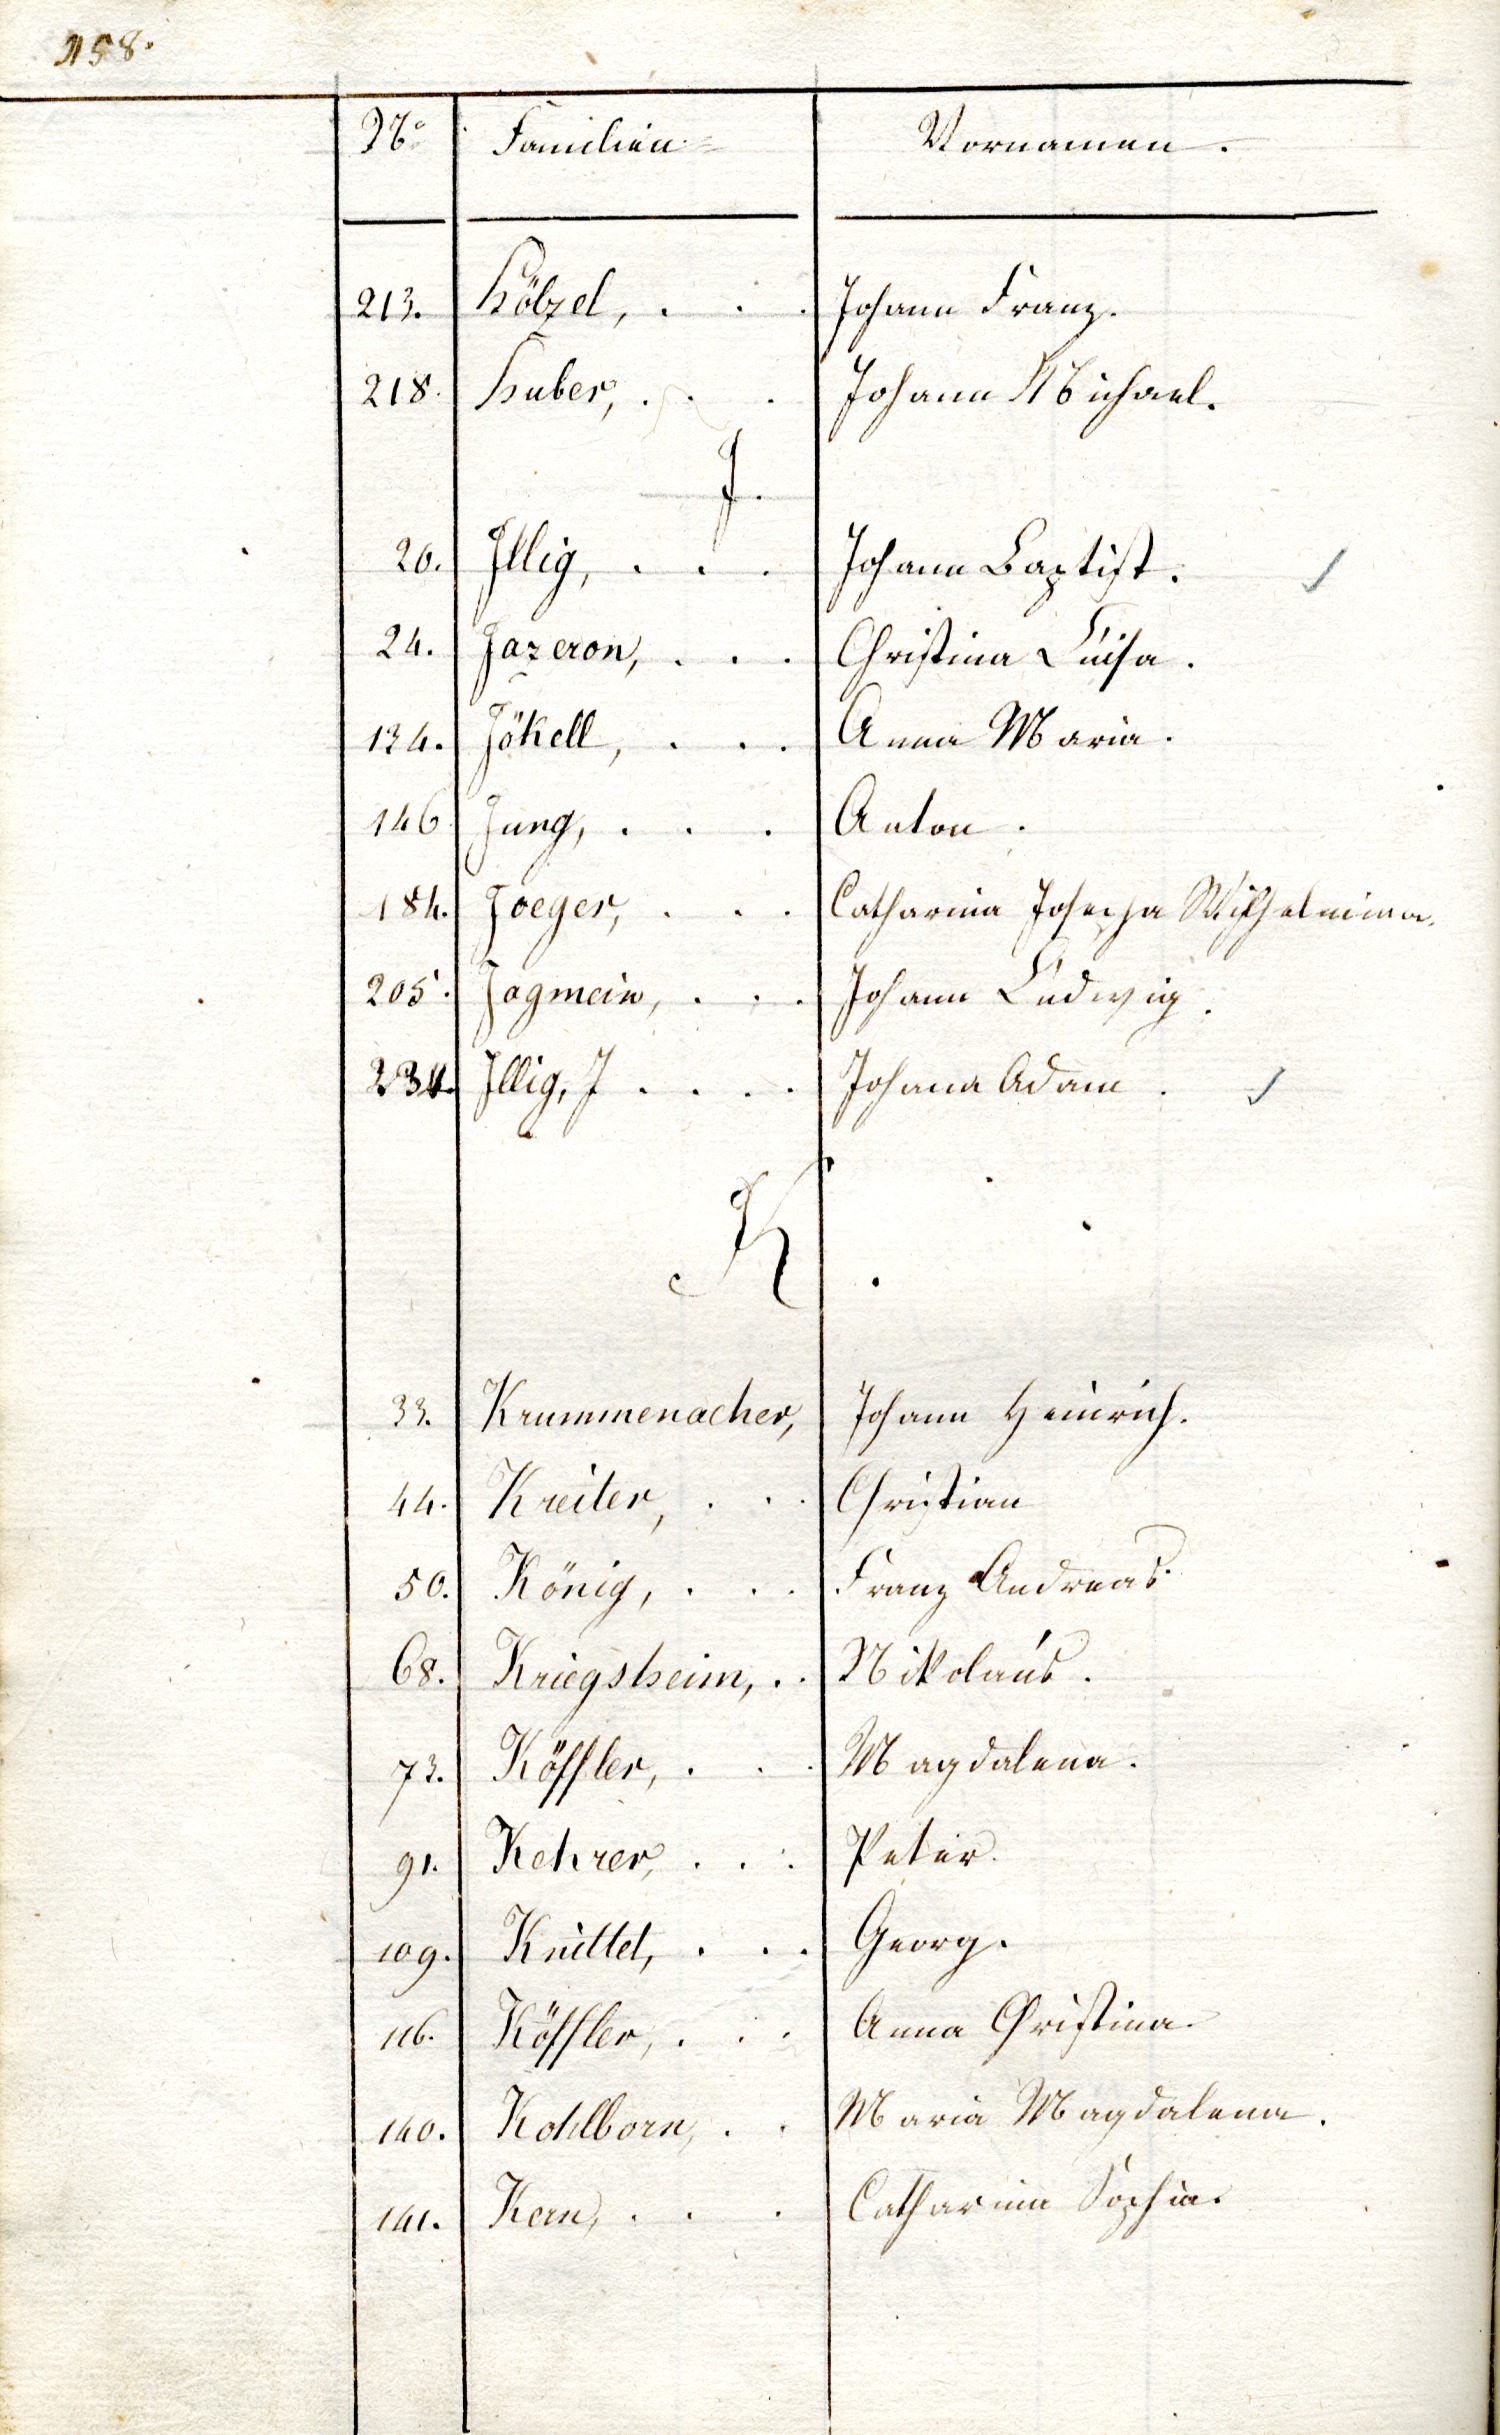 158.
No. Familien= Vornamen.
213. Hölzel, . . . Johann Franz.
218. Huber, . . . Johann Michael.
J.
20. Illig, . . . Johann Baptist. ✓
24. Jazeron, . . . Christina Luisa.
134. Jökell, . . . Anna Maria.
146 Jung, . . . Anton.
184. Joeger, . . . Catharina Josepha Wilhelmina.
205. Jagmein, . . . Johann Ludwig.
234. Illig, J . . . . Johann Adam. ✓
K.
33. Krummenacher, Johann Heinrich.
44. Kreiter, . . . Christian
50. König, . . . Franz Andreas.
68. Kriegsheim, . . Nikolaus.
73. Köffler, . . . Magdalena.
91. Kehrer, . . . Peter.
109. Knittel, . . . Georg.
116. Köffler, . . . Anna Christina.
140. Kohlborn, . . Maria Magdalena.
141. Kern, . . . Catharina Sophia.